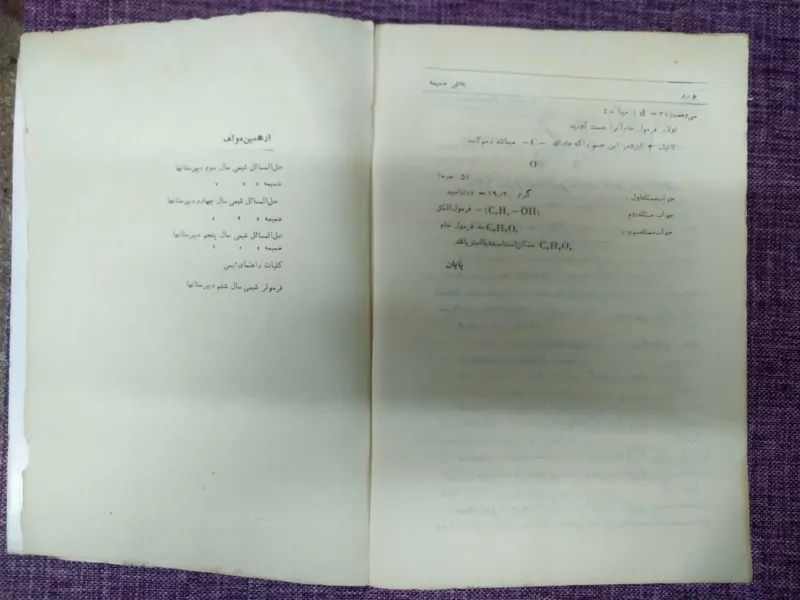 بخش ضمیمه
میباشد
اولا. فرمول خام آنرا بدست آورید
ثانیاً. ۲ ایزومر این جسم را که دارای —C— میباشد رسم کنید
O
جواب مسئله اول: گرم ۱۹٫۲ = وزن اسید
جواب مسئله دوم: فرمول الکل = (C₂H₅ — OH)
جواب مسئله سوم: فرمول خام =
ممکن است اسید و یا استر باشد
پایان
از همین مولف
حل المسائل شیمی سال سوم دبیرستانها
ضمیمه » » »
حل المسائل شیمی سال چهارم دبیرستانها
ضمیمه » » »
حل المسائل شیمی سال پنجم دبیرستانها
ضمیمه » » »
کلیات راهنمای شیمی
فرمولر شیمی سال ششم دبیرستانها